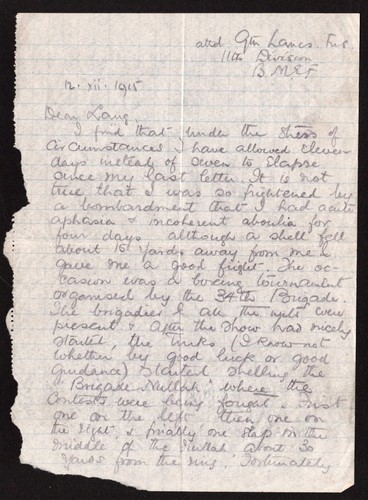 attd 9th Lancs. Fus.
11th Division
B.M.E.F
12. xii. 1915
Dear Lang
I find that under the stress of
circumstances I have allowed eleven
days instead of seven to elapse
since my last letter. It is not
true that I was so frightened by
a bombardment that I had acute
aphasia & incoherent aboulia for
four days although a shell fell
about 15 yards away from me &
gave me a good fright. The oc-
casion was a boxing tournament
organised by the 34th Brigade.
The brigadier & all the were
present & after the show had nicely
started, the Turks (I know not
whether by good luck or good
guidance) started shelling the
"Brigade Nullah" where the
contests were being fought. First
one on the left then one on
the right, & finally one slap in the
middle of the Nullah about 30
yards from the ring. Fortunately